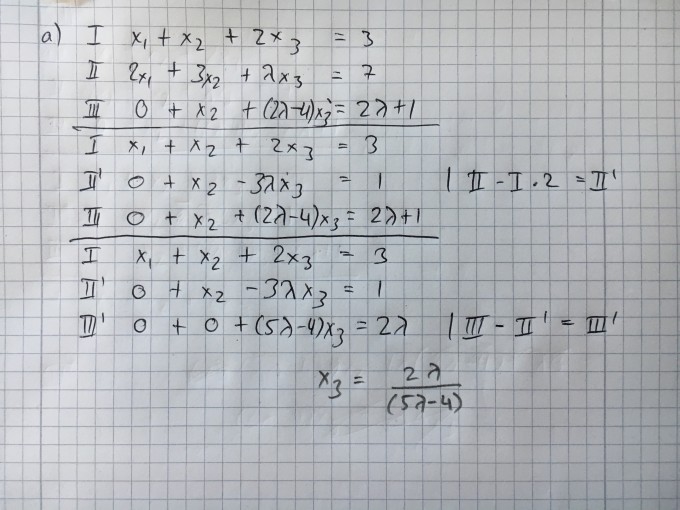 a) I x₁ + x₂ + 2x₃ = 3
II 2x₁ + 3x₂ + λx₃ = 7
III 0 + x₂ + (2λ-4)x₃ = 2λ+1
I x₁ + x₂ + 2x₃ = 3
II' 0 + x₂ - 3λx₃ = 1 | II - I · 2 = II'
III 0 + x₂ + (2λ-4)x₃ = 2λ+1
I x₁ + x₂ + 2x₃ = 3
II' 0 + x₂ - 3λx₃ = 1
III' 0 + 0 + (5λ-4)x₃ = 2λ | III - II' = III'
x₃ = 2λ / (5λ-4)